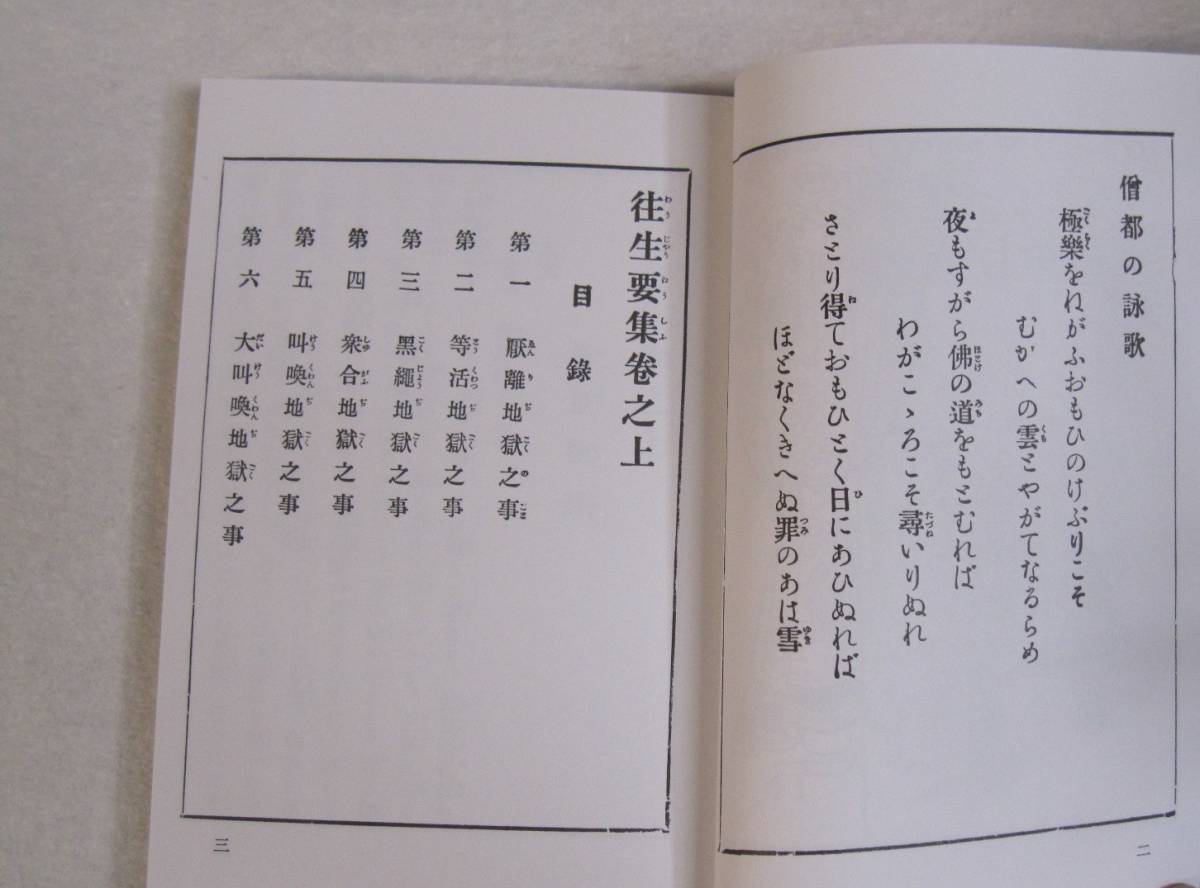 僧都の詠歌
極樂をねがふおもひのけぶりこそ
むかへの雲とやがてなるらめ
夜もすがら佛の道をもとむれば
わがこゝろこそ尋いりぬれ
さとり得ておもひとく日にあひぬれば
ほどなくきへぬ罪のあは雪
二
往生要集卷之上
目錄
第一 厭離地獄之事
第二 等活地獄之事
第三 黑繩地獄之事
第四 衆合地獄之事
第五 叫喚地獄之事
第六 大叫喚地獄之事
三